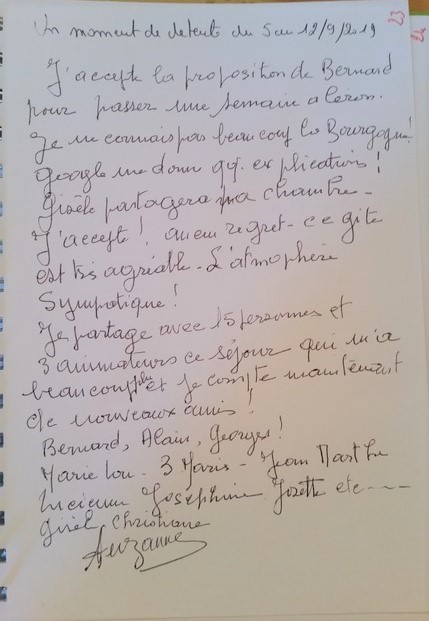 23
Un moment de detente du 5 au 12/9/2019
J'accepte la proposition de Bernard
pour passer une semaine a
Je ne connais pas beaucoup la Bourgogne!
Google me donne qq. explications!
Gisèle partagera ma chambre -
J'accepte! aucun regret - ce gite
est très agréable - L'atmosphère
Sympatique!
Je partage avec 15 personnes et
3 animateurs ce séjour qui m'a
beaucoup plu et je compte maintenant
de nouveaux amis!
Bernard, Alain, Georges!
Marie Lou - 3 Maris - Jean Marthe
Lucienne Josephine Josette etc ----
Gisèle Christiane
Suzanne